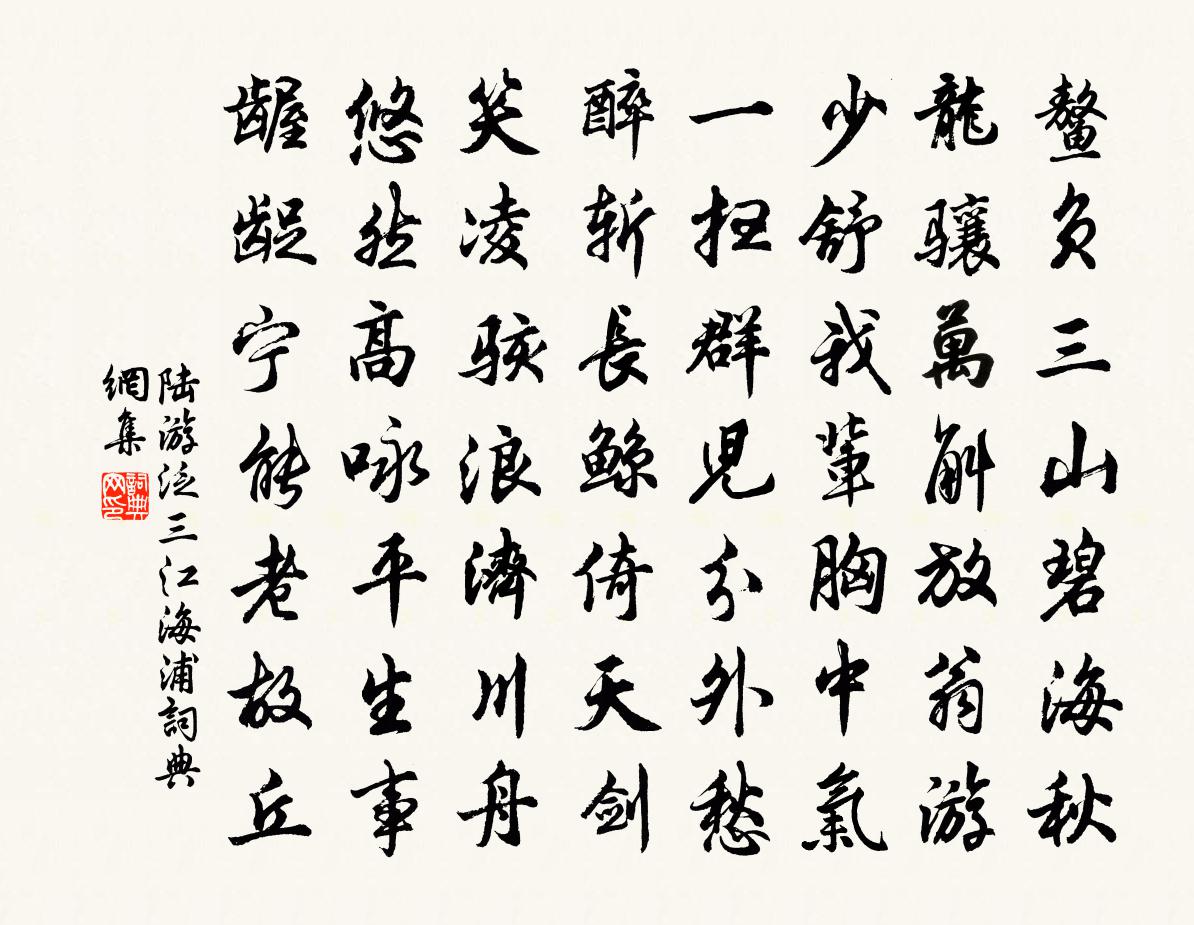 鰲负三山碧海秋
龍驤萬斛放翁游
少舒我輩胸中氣
一扫群児分外愁
醉斩長鲸倚天剑
笑凌骇浪濟川舟
悠然高咏平生事
龌龊宁能老故丘
陆游泛三江海浦詞典
網集
詞典
网印